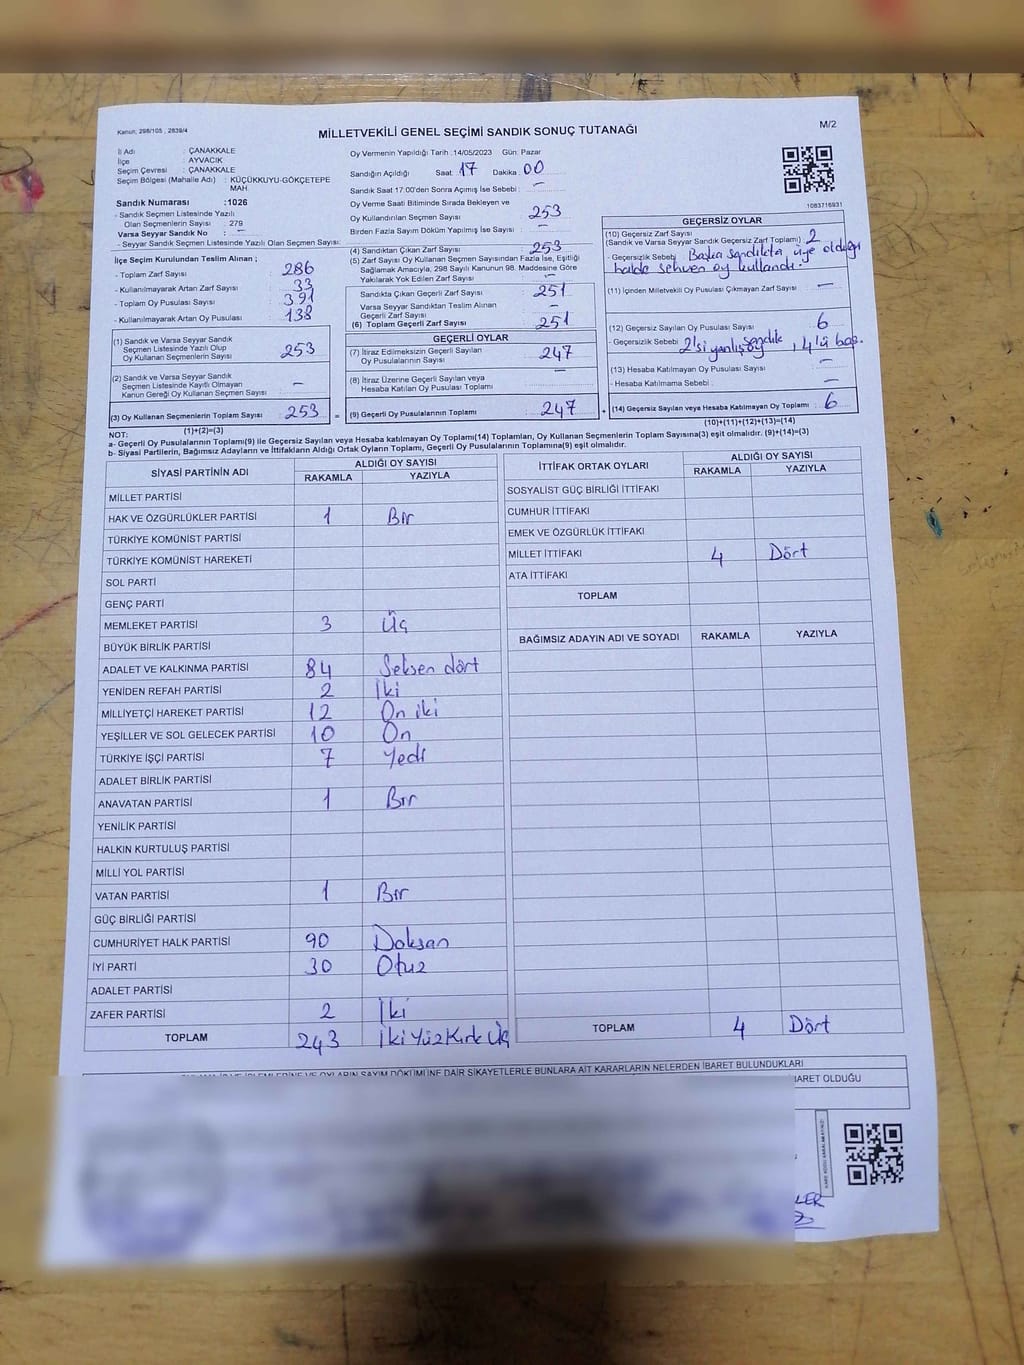 Kanun; 298/105 , 2839/4
MİLLETVEKİLİ GENEL SEÇİMİ SANDIK SONUÇ TUTANAĞI
M/2
İl Adı : ÇANAKKALE
İlçe : AYVACIK
Seçim Çevresi : ÇANAKKALE
Seçim Bölgesi (Mahalle Adı) : KÜÇÜKKUYU-GÖKÇETEPE MAH.
Sandık Numarası :1026
- Sandık Seçmen Listesinde Yazılı
Olan Seçmenlerin Sayısı : 279
Varsa Seyyar Sandık No : –
- Seyyar Sandık Seçmen Listesinde Yazılı Olan Seçmen Sayısı:
İlçe Seçim Kurulundan Teslim Alınan ;
- Toplam Zarf Sayısı : 286
- Kullanılmayarak Artan Zarf Sayısı : 33
- Toplam Oy Pusulası Sayısı : 391
- Kullanılmayarak Artan Oy Pusulası : 138
(1) Sandık ve Varsa Seyyar Sandık
Seçmen Listesinde Yazılı Olup
Oy Kullanan Seçmenlerin Sayısı : 253
(2) Sandık ve Varsa Seyyar Sandık
Seçmen Listesinde Kayıtlı Olmayan
Kanun Gereği Oy Kullanan Seçmen Sayısı : –
(3) Oy Kullanan Seçmenlerin Toplam Sayısı : 253 =
(1)+(2)=(3)
Oy Vermenin Yapıldığı Tarih : 14/05/2023 Gün: Pazar
Sandığın Açıldığı Saat: 17 Dakika: 00
Sandık Saat 17:00'den Sonra Açımış İse Sebebi : –
Oy Verme Saati Bitiminde Sırada Bekleyen ve
Oy Kullandırılan Seçmen Sayısı : 253
Birden Fazla Sayım Döküm Yapılmış İse Sayısı : –
(4) Sandıktan Çıkan Zarf Sayısı : 253
(5) Zarf Sayısı Oy Kullanan Seçmen Sayısından Fazla İse, Eşitliği
Sağlamak Amacıyla, 298 Sayılı Kanunun 98. Maddesine Göre
Yakılarak Yok Edilen Zarf Sayısı : –
Sandıkta Çıkan Geçerli Zarf Sayısı : 251
Varsa Seyyar Sandıktan Teslim Alınan
Geçerli Zarf Sayısı : –
(6) Toplam Geçerli Zarf Sayısı : 251
GEÇERLİ OYLAR
(7) İtiraz Edilmeksizin Geçerli Sayılan
Oy Pusulalarının Sayısı : 247
(8) İtiraz Üzerine Geçerli Sayılan veya
Hesaba Katılan Oy Pusulası Toplamı : –
(9) Geçerli Oy Pusulalarının Toplamı : 247 +
1083716931
GEÇERSİZ OYLAR
(10) Geçersiz Zarf Sayısı
(Sandık ve Varsa Seyyar Sandık Geçersiz Zarf Toplamı) : 2
- Geçersizlik Sebebi : Başka sandıkta üye olduğu
halde sehven oy kullandı.
(11) İçinden Milletvekili Oy Pusulası Çıkmayan Zarf Sayısı : –
(12) Geçersiz Sayılan Oy Pusulası Sayısı : 6
- Geçersizlik Sebebi : 2'si yanlış sandık oy , 4'ü boş.
(13) Hesaba Katılmayan Oy Pusulası Sayısı : –
- Hesaba Katılmama Sebebi : –
(14) Geçersiz Sayılan veya Hesaba Katılmayan Oy Toplamı : 6
(10)+(11)+(12)+(13)=(14)
NOT:
a- Geçerli Oy Pusulalarının Toplamı(9) ile Geçersiz Sayılan veya Hesaba katılmayan Oy Toplamı(14) Toplamları, Oy Kullanan Seçmenlerin Toplam Sayısına(3) eşit olmalıdır. (9)+(14)=(3)
b- Siyasi Partilerin, Bağımsız Adayların ve İttifakların Aldığı Ortak Oyların Toplamı, Geçerli Oy Pusulalarının Toplamına(9) eşit olmalıdır.
SİYASİ PARTİNİN ADI ALDIĞI OY SAYISI
RAKAMLA YAZIYLA
MİLLET PARTİSİ
HAK VE ÖZGÜRLÜKLER PARTİSİ 1 Bir
TÜRKİYE KOMÜNİST PARTİSİ
TÜRKİYE KOMÜNİST HAREKETİ
SOL PARTİ
GENÇ PARTİ
MEMLEKET PARTİSİ 3 Üç
BÜYÜK BİRLİK PARTİSİ
ADALET VE KALKINMA PARTİSİ 84 Seksen dört
YENİDEN REFAH PARTİSİ 2 İki
MİLLİYETÇİ HAREKET PARTİSİ 12 On iki
YEŞİLLER VE SOL GELECEK PARTİSİ 10 On
TÜRKİYE İŞÇİ PARTİSİ 7 Yedi
ADALET BİRLİK PARTİSİ
ANAVATAN PARTİSİ 1 Bir
YENİLİK PARTİSİ
HALKIN KURTULUŞ PARTİSİ
MİLLİ YOL PARTİSİ
VATAN PARTİSİ 1 Bir
GÜÇ BİRLİĞİ PARTİSİ
CUMHURİYET HALK PARTİSİ 90 Doksan
İYİ PARTİ 30 Otuz
ADALET PARTİSİ
ZAFER PARTİSİ 2 İki
TOPLAM 243 İki Yüz Kırk Üç
İTTİFAK ORTAK OYLARI ALDIĞI OY SAYISI
RAKAMLA YAZIYLA
SOSYALİST GÜÇ BİRLİĞİ İTTİFAKI
CUMHUR İTTİFAKI
EMEK VE ÖZGÜRLÜK İTTİFAKI
MİLLET İTTİFAKI 4 Dört
ATA İTTİFAKI
TOPLAM
BAĞIMSIZ ADAYIN ADI VE SOYADI RAKAMLA YAZIYLA
TOPLAM 4 Dört
OYLARIN SAYIM DÖKÜMÜNE DAİR ŞİKAYETLERLE BUNLARA AİT KARARLARIN NELERDEN İBARET BULUNDUKLARI
İBARET OLDUĞU